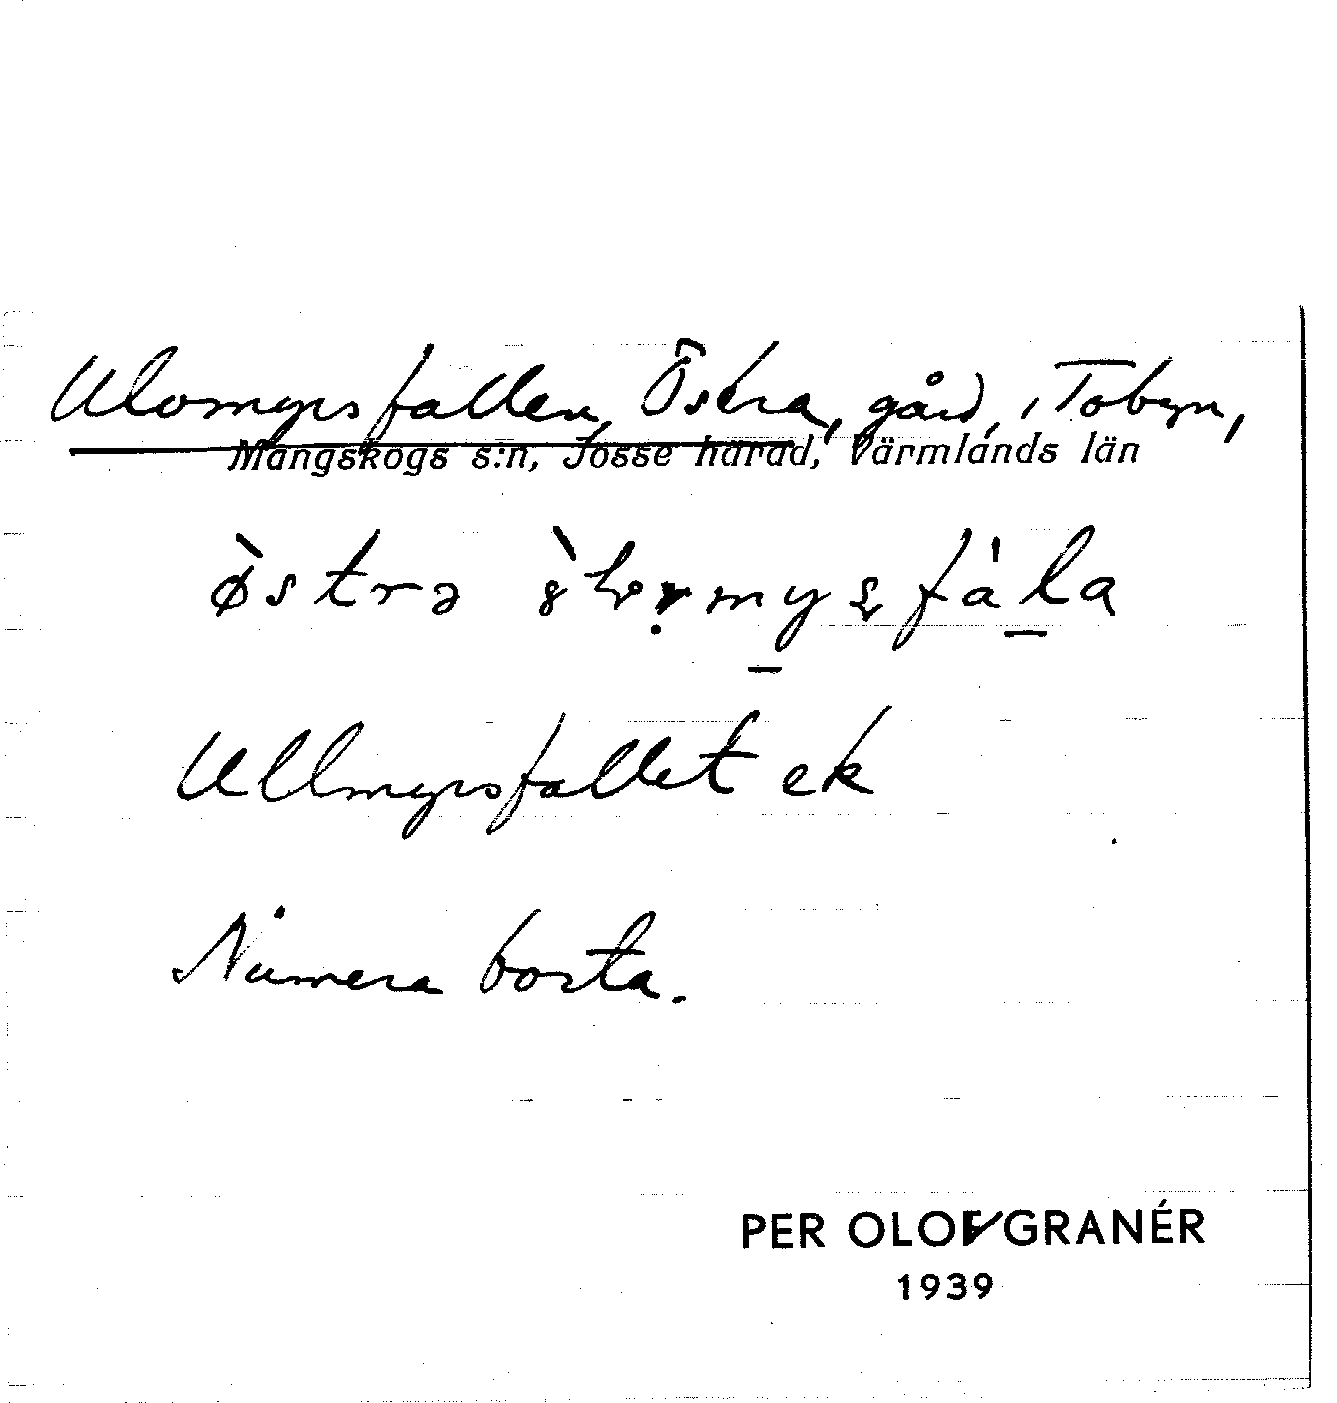 Ulomyrsfallen, Östra, gård, i Tobyn,
Mangskogs s:n, Jösse härad, Värmlands län
Ullmyrsfallet ek
Numera borta.
PER OLOF GRANÉR
1939